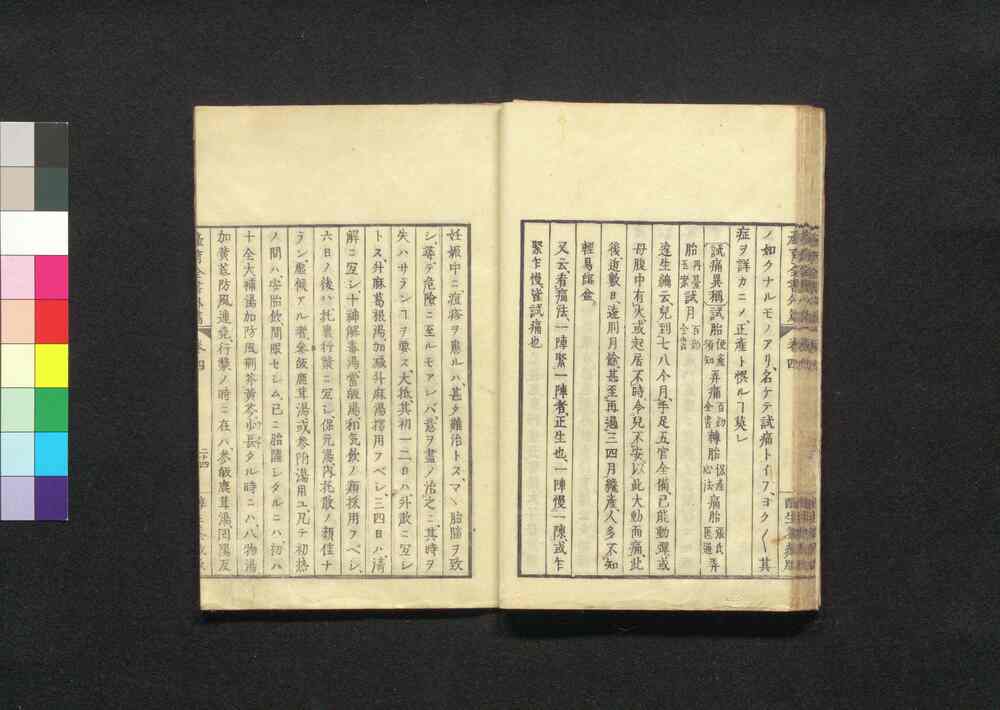 ノ如クナルモノアリ、名ケテ試痛トイフ、ヨク〱其
症ヲ詳カニノ正産ト悞ルヿ莫レ
試痛異稱 試胎 便産須知 弄痛 百効全書 轉胎 保産心法 痛胎 張氏医通 弄
胎 再晷玉案 試月 百効全書
達生編云兒到七八个月、手足五官全備已能動彈或
母腹中有火或起居不時、令兒不安以此大動而痛、此
後近數日、遠則月餘、甚至再過三四月纔産人多不知
輕易臨盆
又云、看痛法、一陣緊一陣者、正生也、一陣慢一陣或乍
緊乍慢皆試痛也
産育全書外篇 卷四
妊娠中ニ痘疹ヲ患ルハ、甚タ難治トス、マヽ胎墮ヲ致
シ、尋デ危險ニ至ルモアレバ、意ヲ盡ノ治之ニ、其時ヲ
失ハサランヿヲ要ス、大抵、其初一二日ハ、升散ニ宜シ
トス、升麻葛根湯、加減升麻湯擇用フベシ、三四日ハ清
解ニ宜シ、十神解毒湯、當皈湯、和氣飲ノ類採用フベシ、
六日ノ後ハ托裏行漿ニ宜シ、保元湯、内托散ノ類佳ナ
ラン、虚候アル者、參皈鹿茸湯或參附湯用ユ、凡テ初熱
ノ間ハ、安胎飲間服セシム、已ニ胎隨シタルニハ、初ハ
十全大補湯加防風荊芥黄芩、小長タル時ニハ、八物湯
加黄芪防風連尭、行漿ノ時ニ在ハ參皈鹿茸湯、回陽反